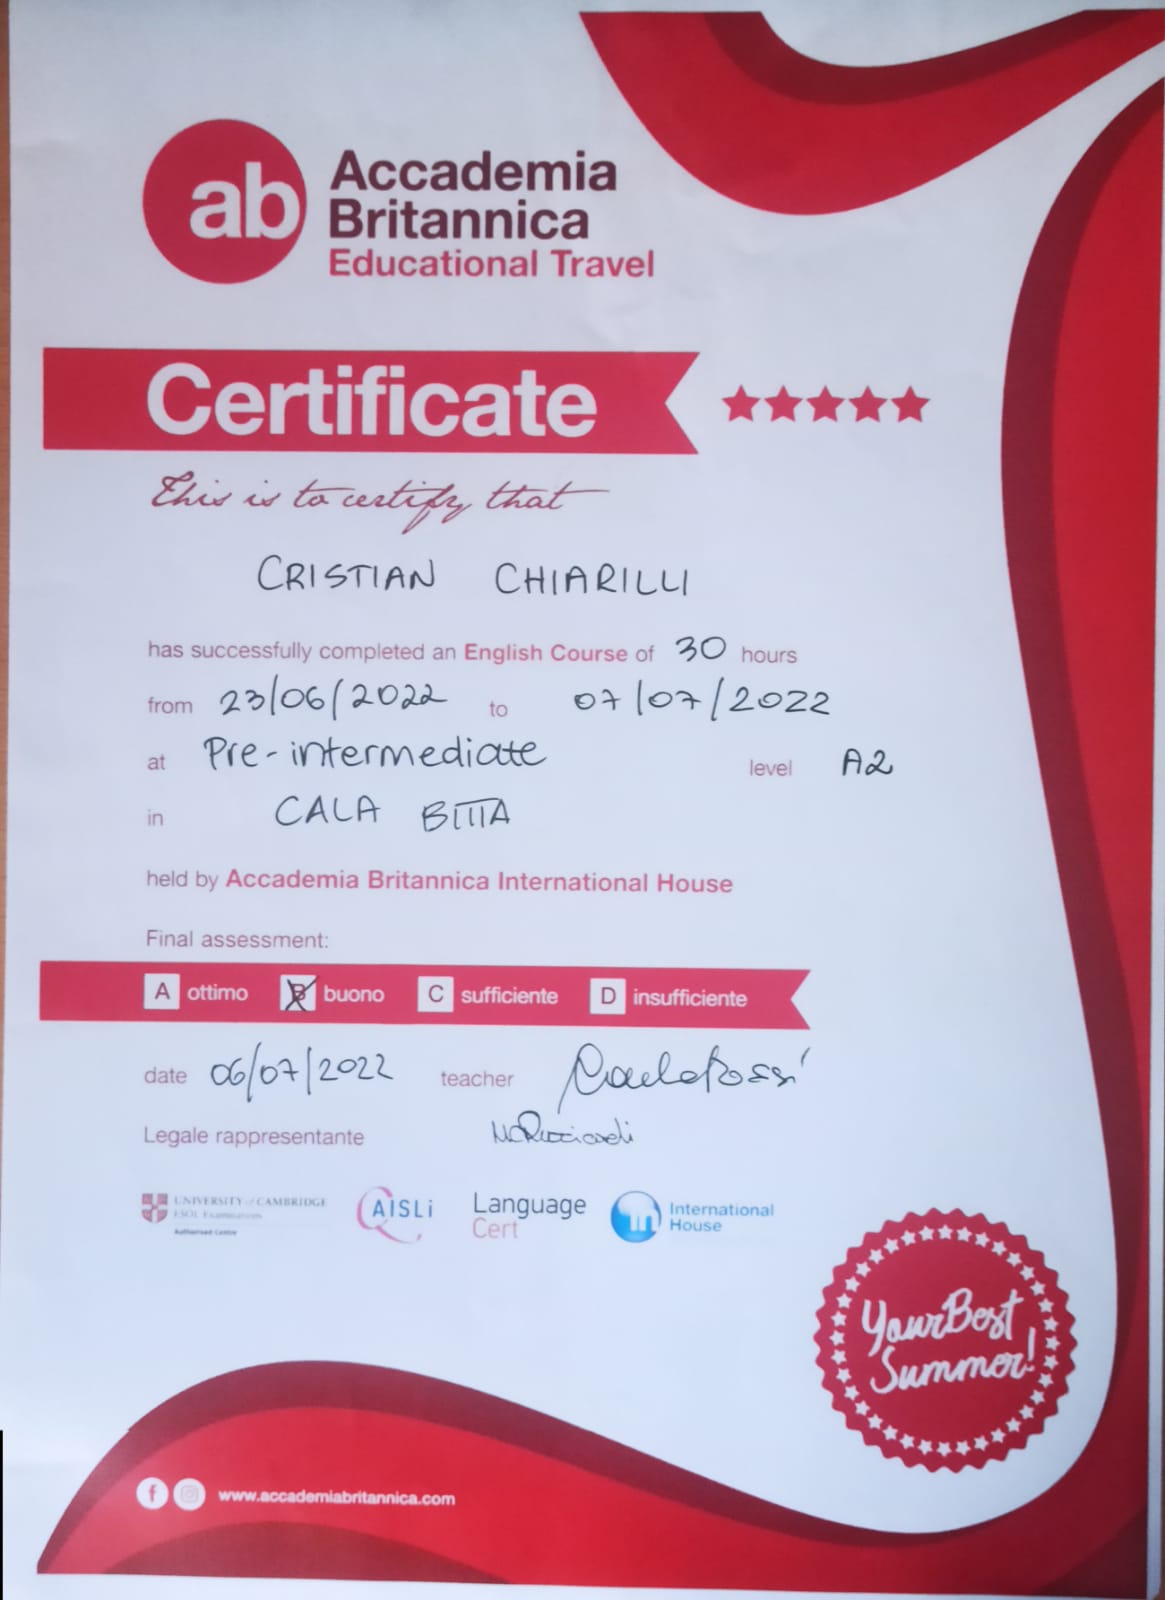 ab
Accademia
Britannica
Educational Travel
Certificate
This is to certify that
CRISTIAN CHIARILLI
has successfully completed an English Course of 30 hours
from 23/06/2022 to 07/07/2022
at Pre-intermediate level A2
in CALA BITTA
held by Accademia Britannica International House
Final assessment:
A ottimo B buono C sufficiente D insufficiente
date 06/07/2022 teacher
Legale rappresentante
UNIVERSITY of CAMBRIDGE
ESOL Examinations
Authorised Centre
AISLi
Language
Cert
International
House
Your Best
Summer!
www.accademiabritannica.com